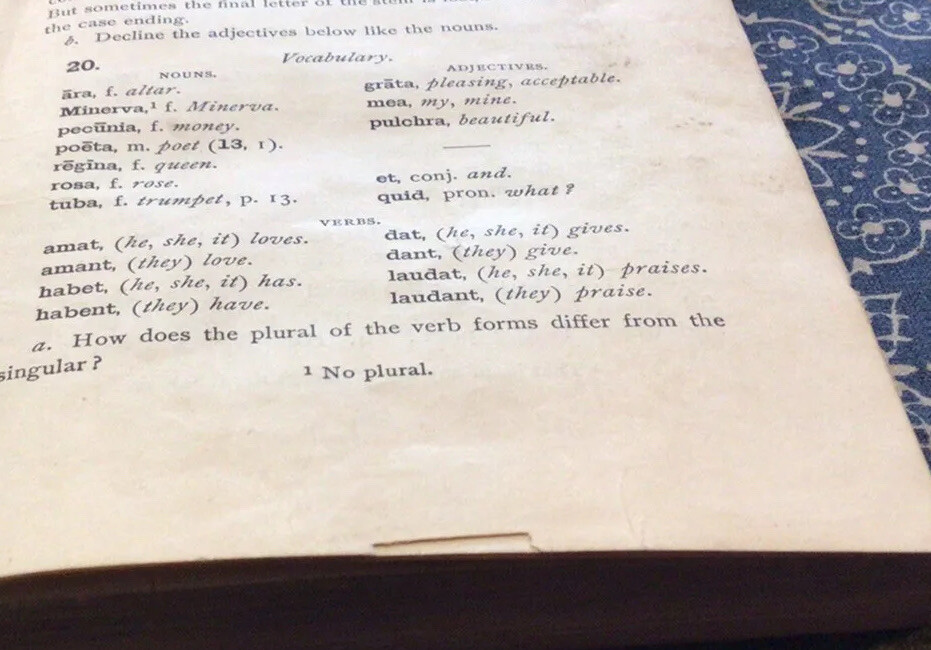 But sometimes the final letter of the stem is
the case ending.
b. Decline the adjectives below like the nouns.
20. Vocabulary.
NOUNS.
āra, f. altar.
Minerva,¹ f. Minerva.
pecūnia, f. money.
poēta, m. poet (13, 1).
rēgīna, f. queen.
rosa, f. rose.
tuba, f. trumpet, p. 13.
ADJECTIVES.
grāta, pleasing, acceptable.
mea, my, mine.
pulchra, beautiful.
et, conj. and.
quid, pron. what?
VERBS.
amat, (he, she, it) loves.
amant, (they) love.
habet, (he, she, it) has.
habent, (they) have.
dat, (he, she, it) gives.
dant, (they) give.
laudat, (he, she, it) praises.
laudant, (they) praise.
a. How does the plural of the verb forms differ from the
singular?
¹ No plural.